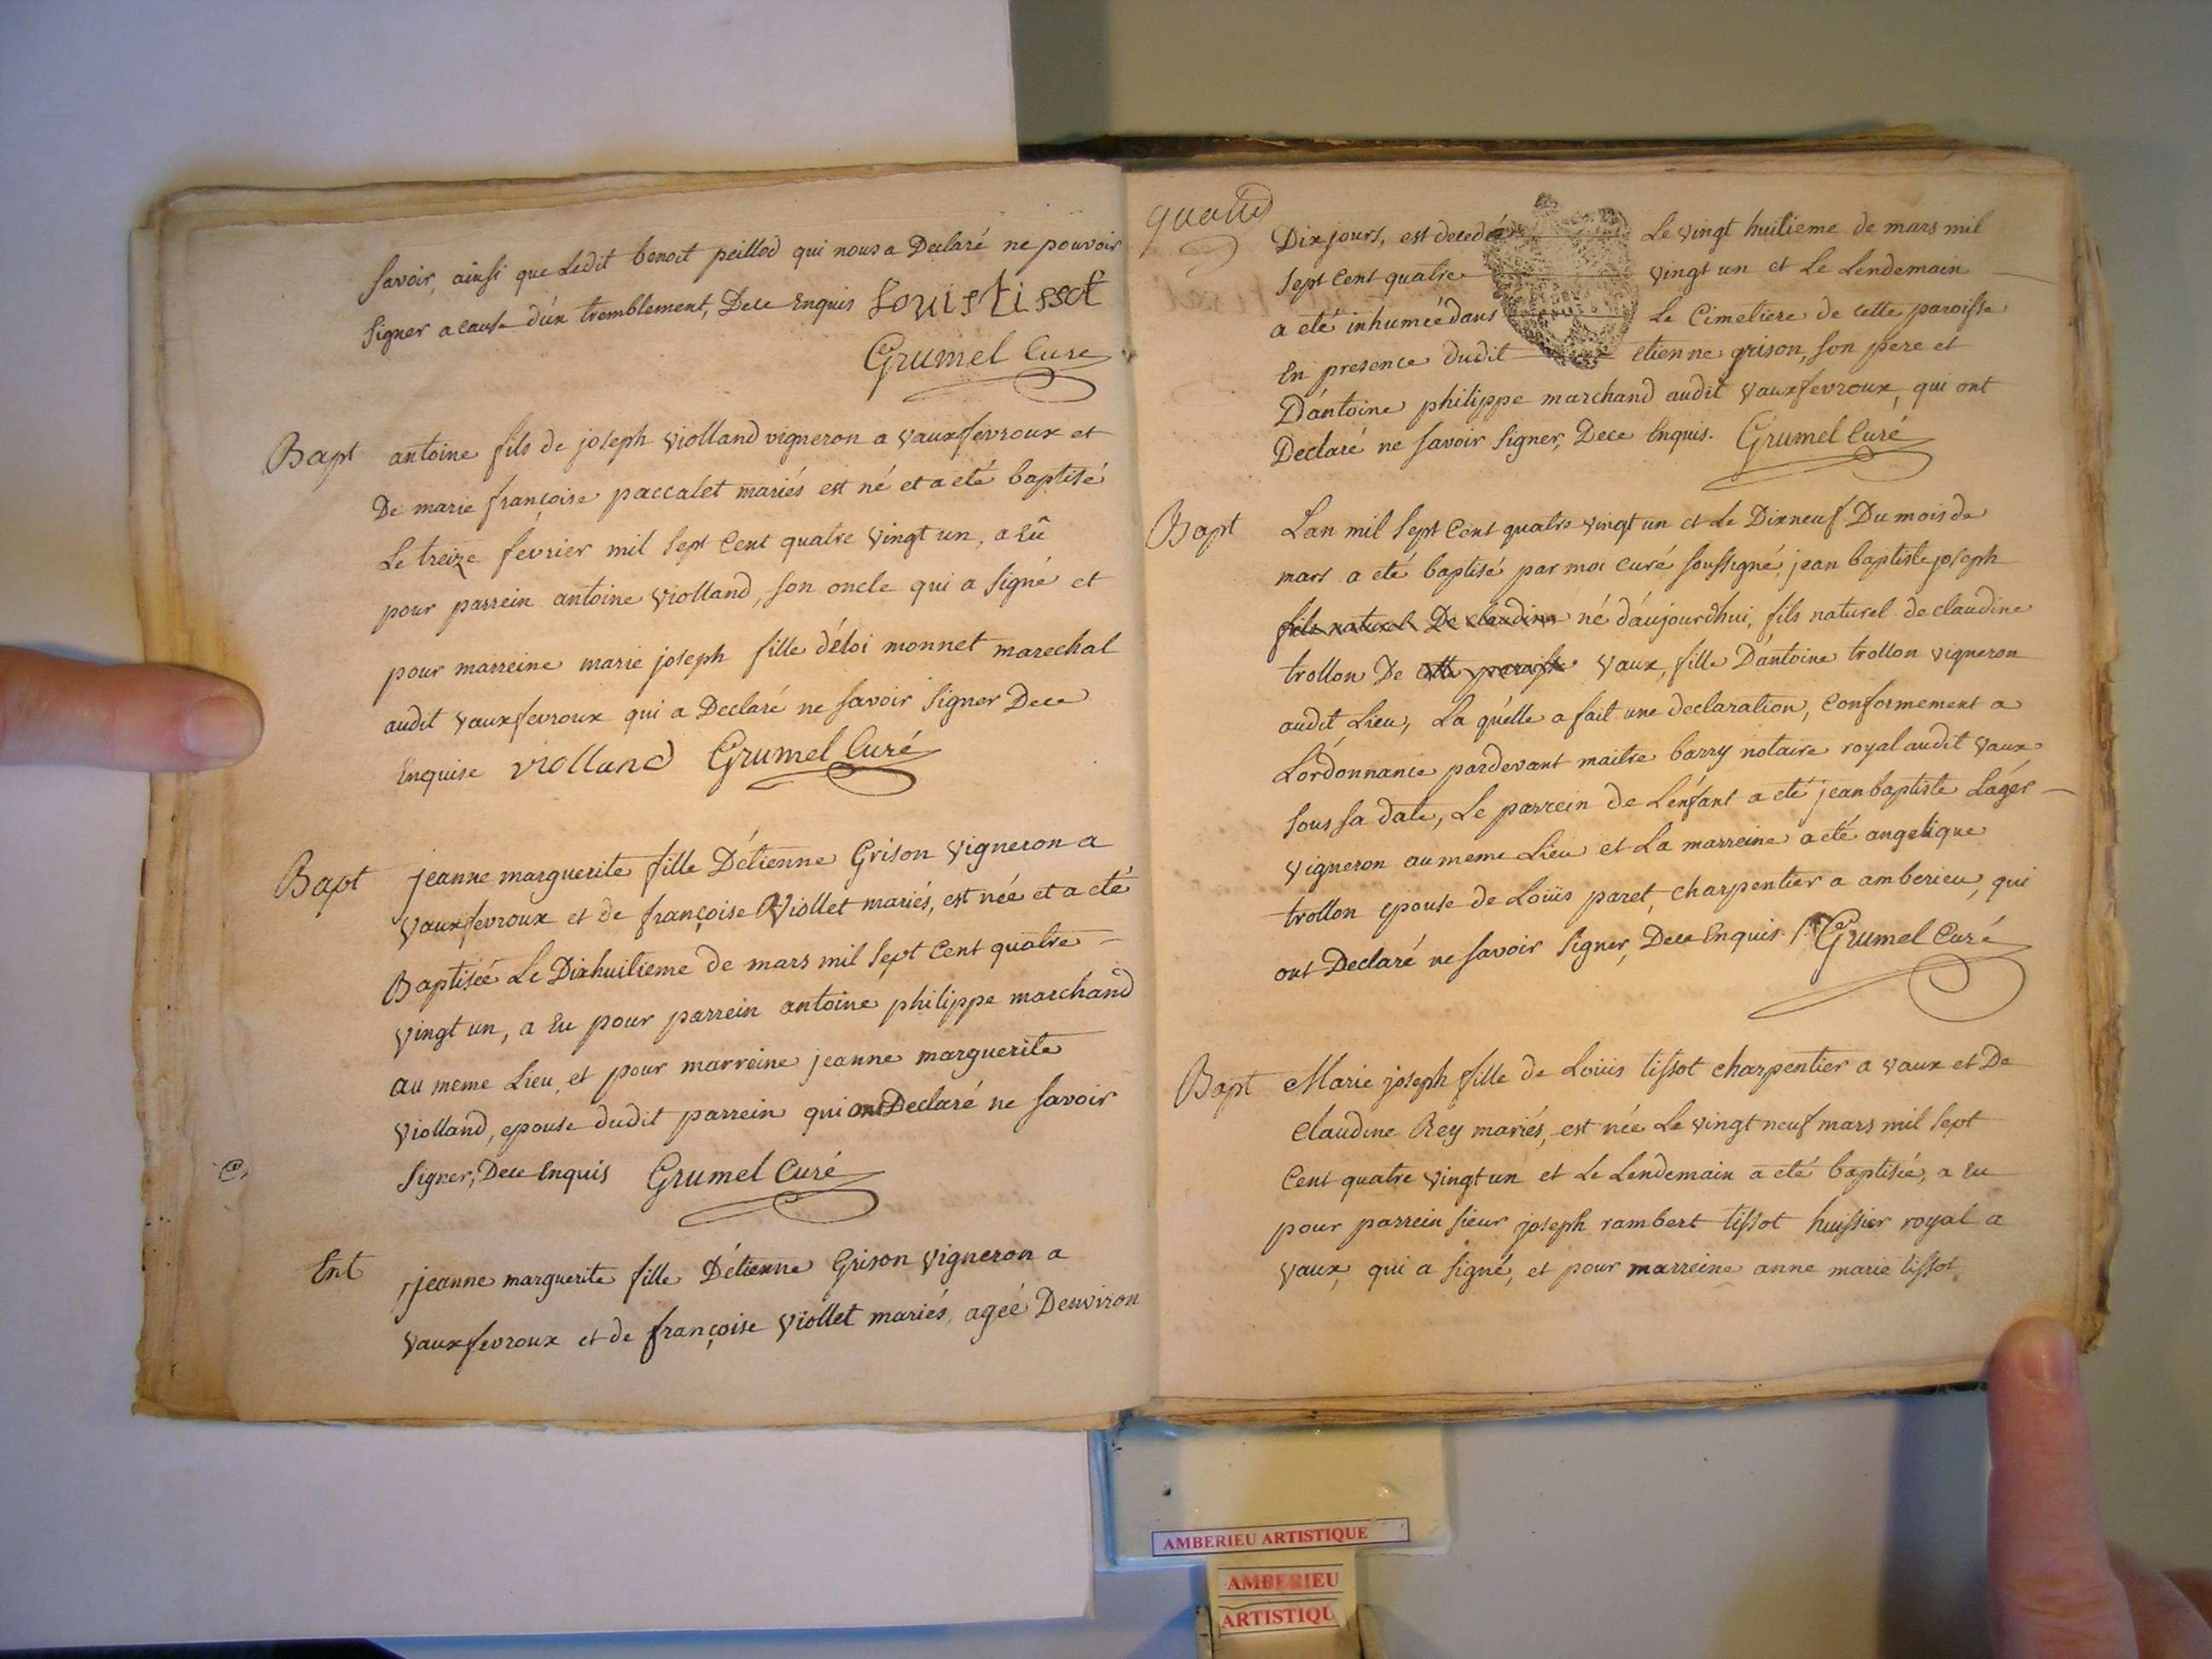 savoir, ainsi que ledit benoit peillod qui nous a Declaré ne pouvoir
signer a cause d'un tremblement, Dece Enquis Louis tissot
Grumel Curé
Bapt antoine fils de joseph violland vigneron a vauxfevroux et
De marie françoise paccalet mariés est né et a eté baptisé
Le treize fevrier mil sept Cent quatre vingt un, a Eû
pour parrein antoine violland, son oncle qui a signé et
pour marreine marie joseph fille d'éloi monnet marechal
audit vauxfevroux qui a Declaré ne savoir signer Dece
Enquise violland Grumel Curé
Bapt jeanne marguerite fille D'étienne Grison vigneron a
vauxfevroux et de françoise Viollet mariés, est née et a eté
Baptisée Le Dixhuitieme de mars mil sept Cent quatre
vingt un, a Eu pour parrein antoine philippe marchand
au meme Lieu, et pour marreine jeanne marguerite
violland, epouse dudit parrein qui ont Declaré ne savoir
signer, Dece Enquis Grumel Curé
Ent jeanne marguerite fille D'étienne Grison vigneron a
vauxfevroux et de françoise viollet mariés, ageé Denviron
Dix jours, est decedée Le vingt huitieme de mars mil
sept Cent quatre vingt un et Le Lendemain
a eté inhumée dans Le Cimetiere de cette paroisse
En presence dudit etienne grison, son pere et
D'antoine philippe marchand audit vauxfevroux, qui ont
Declaré ne savoir signer, Dece Enquis. Grumel Curé
Bapt Lan mil sept Cent quatre vingt un et Le Dixneuf Du mois de
mars a eté baptisé par moi curé soussigné, jean baptiste joseph
fils naturel De claudine né d'aujourdhui, fils naturel de claudine
trollon De cette paroisse vaux, fille D'antoine trollon vigneron
audit Lieu, La quelle a fait une declaration, Conformement a
L'ordonnance pardevant maitre barry notaire royal audit vaux
sous sa date, Le parrein de L'enfant a eté jean baptiste Lager
vigneron au meme Lieu et La marreine a eté angelique
trollon epouse de Louis paret, charpentier a amberieu, qui
ont Declaré ne savoir signer, Dece Enquis / Grumel Curé
Bapt Marie joseph fille de Louis tissot charpentier a vaux et De
claudine Rey mariés, est née Le vingt neuf mars mil sept
Cent quatre vingt un et Le Lendemain a eté baptisée, a Eu
pour parrein sieur joseph rambert tissot huissier royal a
vaux, qui a signé, et pour marreine anne marie tissot
AMBERIEU ARTISTIQUE
AMBERIEU
ARTISTIQU